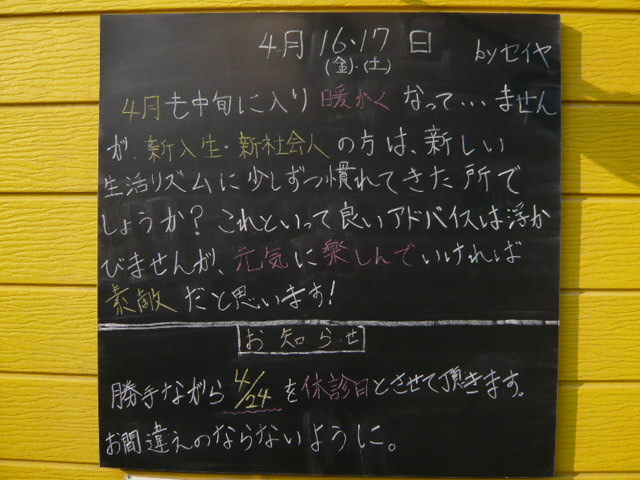 4月 16・17 日 byセイヤ
(金)・(土)
4月も中旬に入り 暖かく なって…ません
が、新入生・新社会人 の方は、新しい
生活リズムに少しずつ慣れてきた所で
しょうか？これといって良いアドバイスは浮か
びませんが、元気に楽しんでいければ
素敵 だと思います！
お知らせ
勝手ながら 4/24 を休診日とさせて頂きます。
お間違えのならないように。